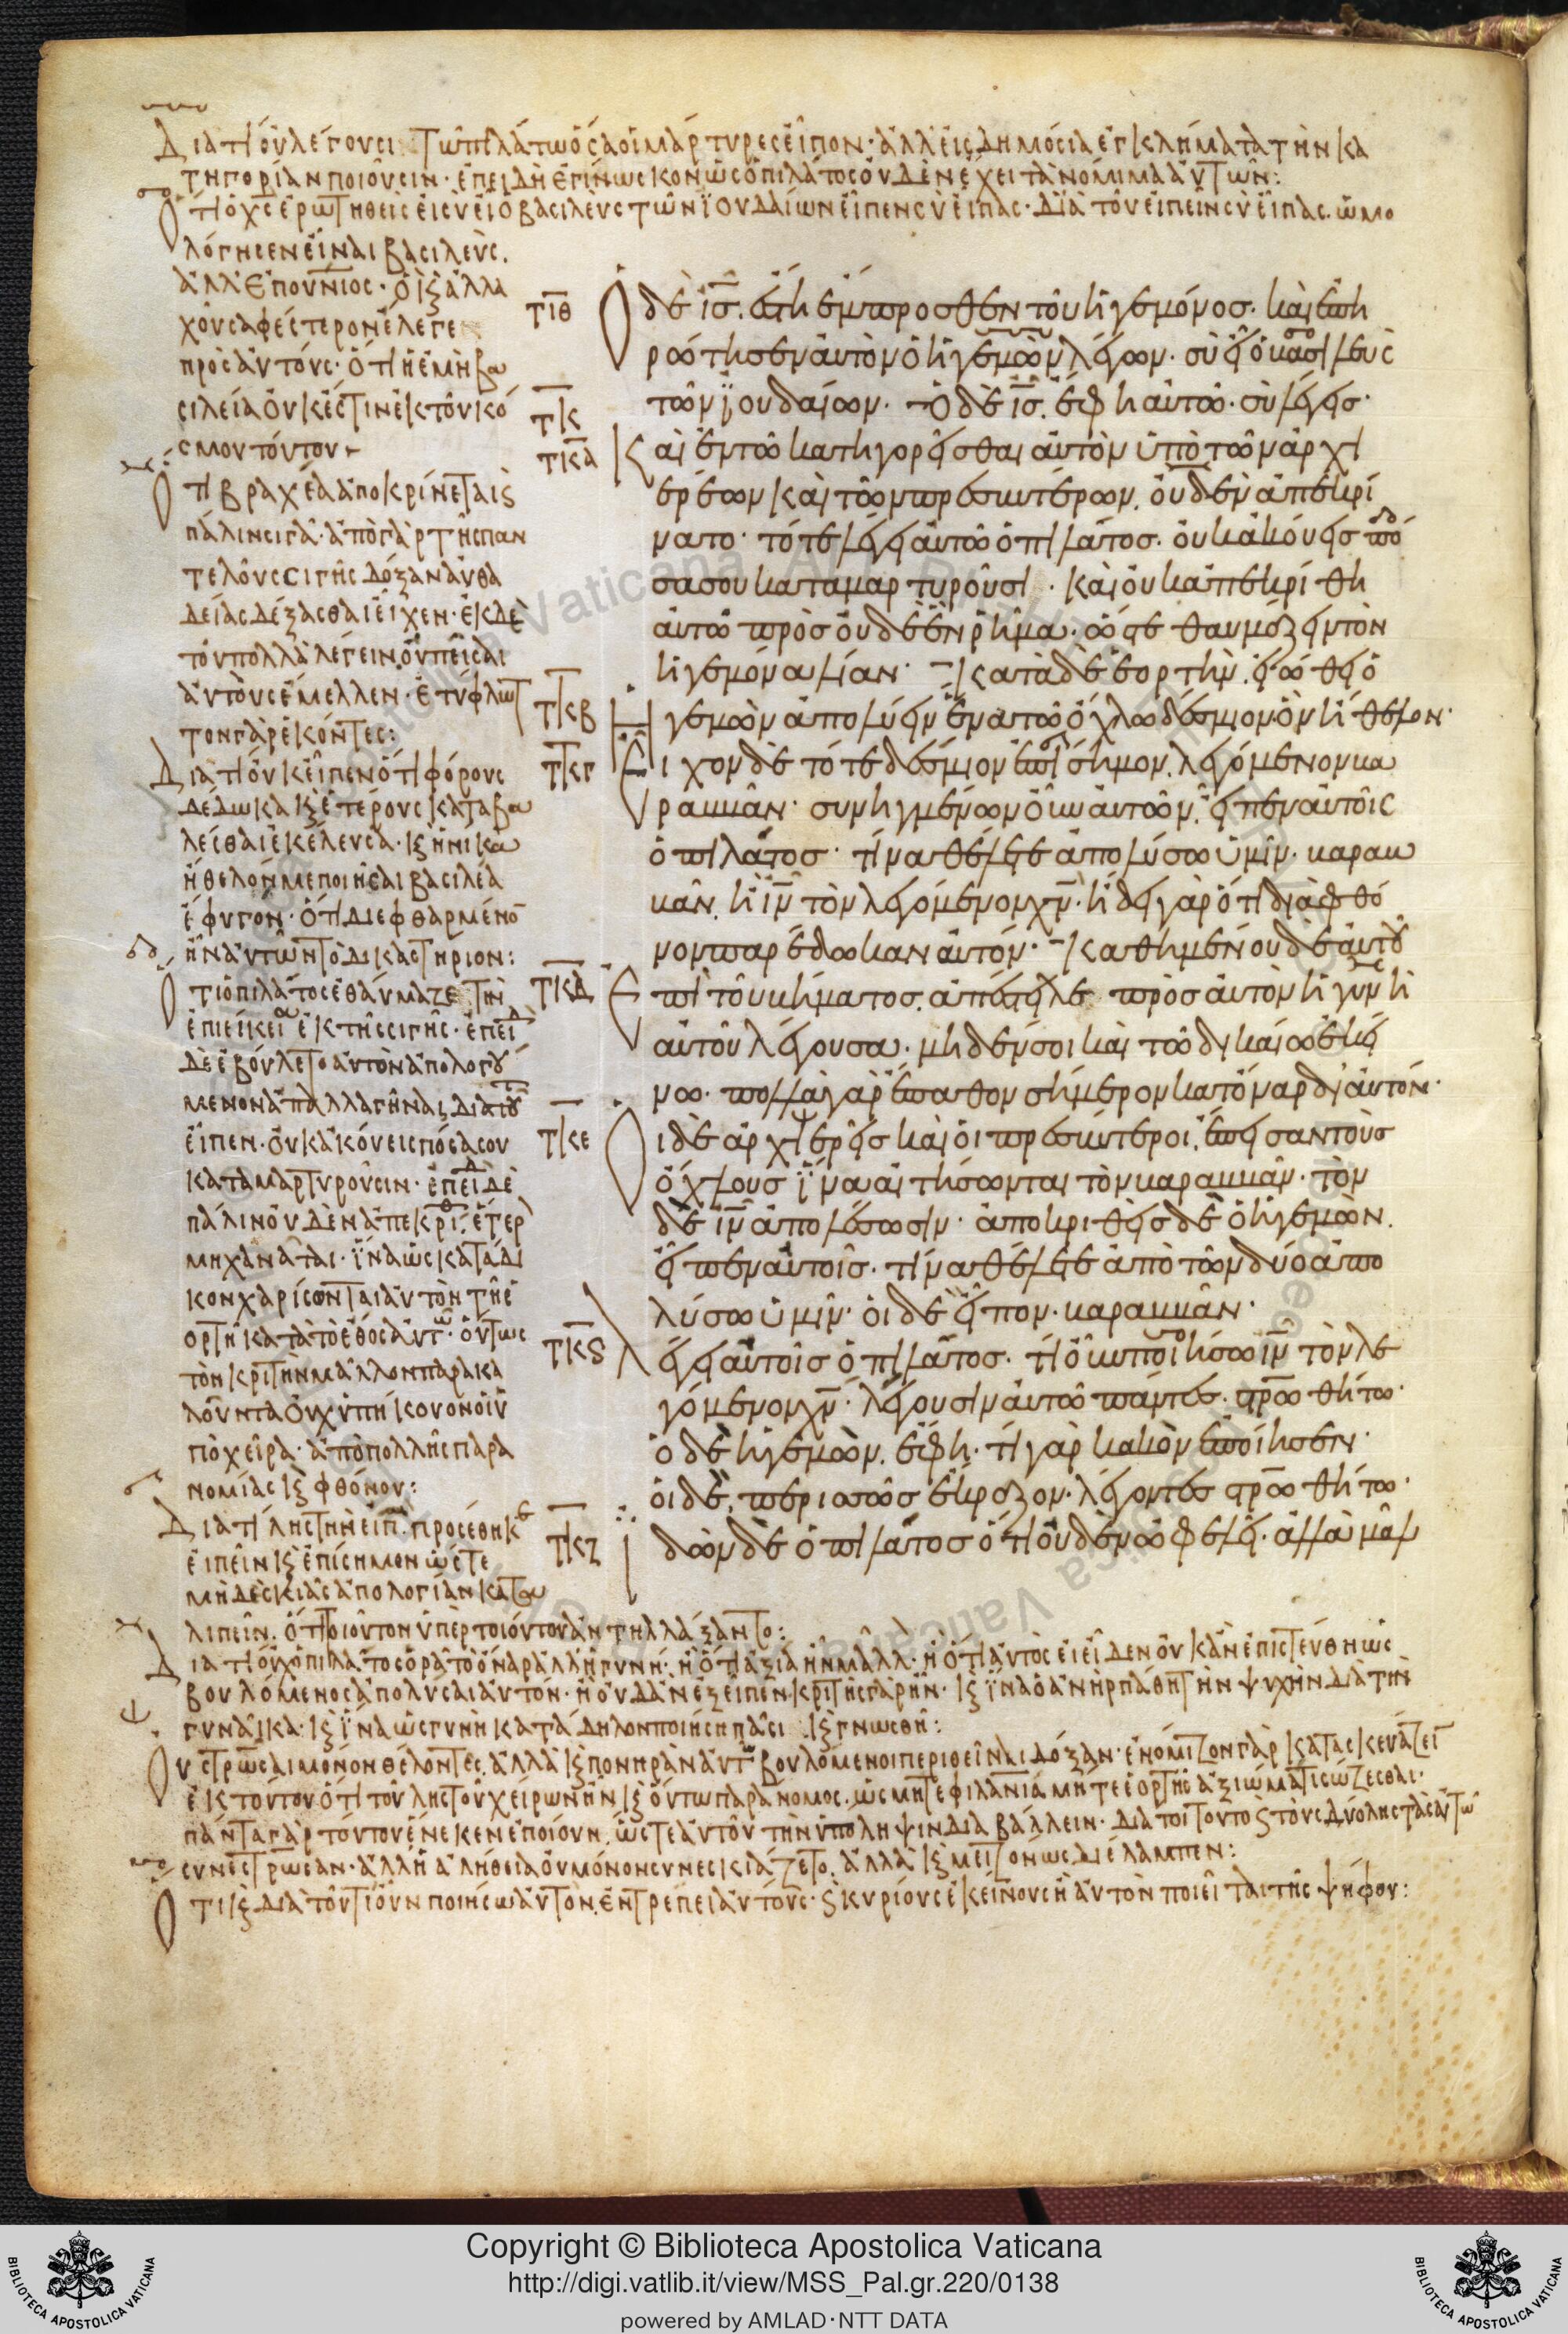 Διατί οὐ λέγουσι τῶ πιλάτω ὅσα οἱ μάρτυρες εἶπον· ἀλλ εἰς δημόσια ἐγκλήματα τὴν κα
τηγορίαν ποιοῦσιν· ἐπειδὴ ἐγίνωσκον ὡς ὁ πιλάτος οὐδὲν ἔχει τὰ νόμιμα αὐτῶν:
Ὅτι ὁ χς ἐρωτηθεὶς εἰ σὺ εἶ ὁ βασιλεὺς τῶν ἰουδαίων εἶπεν σὺ εἶπας· διὰ τοῦ εἰπεῖν σὺ εἶπας. ὡμο
λόγησεν εἶναι βασιλεύς.
ἀλλ ἐπουνιος· ὃ κ ἀλλα
χοῦ σαφέστερον ἔλεγε
πρὸς αὐτούς· ὅτι ἡ ἐμὴ βα
σιλεία οὐκ ἔστιν ἐκ τοῦ κό
σμου τούτου
Ὅτι βραχέα ἀποκρίνεται κ
πάλιν σιγᾶ· ἀπὸ γὰρ τῆς παν
τελοῦς σιγῆς δόξαν αὐθα
δείας δέξασθαι εἶχεν· ἐκ δὲ
τοῦ πολλὰ λέγειν, οὐ πεῖσαι
αὐτοὺς ἔμελλεν· ἐτύφλωτ
τον γὰρ ἑκόντες:
Διατί οὐκ εἶπεν ὅτι φόρους
δέδωκα κ ἑτέρους καταβα
λεῖσθαι ἐκέλευσα· κ ἡνίκα
ἤθελόν με ποιῆσαι βασιλέα
ἔφυγον· ὅτι διεφθαρμένο
ἦν αὐτῶν τὸ δικαστήριον:
Ὅτι ὁ πιλάτος ἐθαύμαζε τὴν
ἐπιείκεια ἐκ τῆς σιγῆς· ἐπειδ
δὲ ἐβούλετο αὐτὸν ἀπολογού
μενον ἀπαλλαγῆναι, διὰ τοῦτ
εἶπεν· οὐκ ἀκούεις πόσα σου
καταμαρτυροῦσιν· ἐπειδ δὲ
πάλιν οὐδὲν ἀπεκρίθ, ἕτερ
μηχανᾶται· ἵνα ὡς κατάδι
κον χαρίσωνται αὐτὸν τῆ ἑ
ορτῆ κατὰ τὸ ἔθος αὐτῶν· οὕτως
τὸν κριτὴν μᾶλλον παρακα
λοῦντα οὐχ ὑπήκουον οἱ ὑ
πὸ χεῖρα· ἀπὸ πολλῆς παρα
νομίας κ φθόνου:
Διατί ληστὴν εἰπ. προσέθηκε
εἰπεῖν κ ἐπίσημον ὥστε
μηδὲ σκιᾶς ἀπολογίαν κατα
λιπεῖν. ὅτι τοιοῦτον ὑπὲρ τοιούτου ἀντηλλάξαντο:
Διατί οὐχ ὁ πιλάτος ὁρᾶ τὸ ὄναρ ἀλλ ἡ γυνή· ἢ ὅτι ἀξία ἦν μᾶλλ· ἢ ὅτι αὐτὸς εἰ εἶδεν οὐκ ἂν ἐπιστεύθη ὡς
βουλόμενος ἀπολῦσαι αὐτόν· ἢ οὐδ ἂν ἐξεῖπεν, κριτὴς γὰρ ἦν· κ ἵνα ὁ ἀνὴρ πάθη τὴν ψυχὴν διὰ τὴν
γυναῖκα· κ ἵνα ὡς γυνὴ κατάδηλον ποιήση πᾶσι κ γνωσθῆ:
Οὐ στρῶσαι μόνον θέλοντες. ἀλλὰ κ πονηρὰν αὐτ βουλόμενοι περιθεῖναι δόξαν· ἐνόμιζον γὰρ κατασκευάζει
ἐκ τούτου ὅτι τοῦ ληστοῦ χείρων ἦν κ οὕτω παράνομος. ὡς μήτε φιλανία μήτε ἑορτῆς ἀξιώματι σώζεσθαι·
πάντα γὰρ τούτου ἕνεκεν ἐποίουν. ὥστε αὐτοῦ τὴν ὑπόληψιν διαβάλλειν· διὰ τοι τοῦτο κ τοὺς δύο ληστὰς αὐτῶ
συνεστρωσαν· ἀλλ ἡ ἀλήθεια οὐ μόνον συνεσκιάζετο. ἀλλὰ κ μεῖζον ὡς διέλαμπεν:
Ὅτι κ διὰ τοῦ τί οὖν ποιήσω αὐτὸν, ἐντρέπει αὐτούς· κ κυρίους ἐκείνους ἢ αὐτὸν ποιεῖται τῆς ψήφου:
τιθ Ὁ δὲ ις. ἔστη ἔμπροσθεν τοῦ ἡγεμόνος. καὶ ἐπη
ρώτησεν αὐτὸν ὁ ἡγεμὼν λέγων. σὺ εἶ ὁ βασιλεὺς
τκ τῶν ἰουδαίων. Ὁ δὲ ις. ἔφη αὐτῶ. σὺ λέγεις.
τκα Καὶ ἐν τῶ κατηγορεῖσθαι αὐτὸν ὑπὸ τῶν ἀρχι
ερέων καὶ τῶν πρεσβυτέρων, οὐδὲν ἀπεκρί
νατο. τότε λέγει αὐτῶ ὁ πιλάτος. οὐκ ἀκούεις πό
σα σου καταμαρτυροῦσι. καὶ οὐκ ἀπεκρίθη
αὐτῶ πρὸς οὐδὲ ἓν ῥῆμα. ὥστε θαυμάζειν τὸν
ἡγεμόνα λίαν. κατὰ δὲ ἑορτὴν. εἰώθει ὁ
τκβ ἡγεμὼν ἀπολύειν ἕνα τῶ ὄχλω δέσμιον ὃν ἤθελον.
τκγ Εἶχον δὲ τότε δέσμιον ἐπίσημον. λεγόμενον βα
ραββᾶν. συνηγμένων οὖν αὐτῶν, εἶπεν αὐτοῖς
ὁ πιλάτος. τίνα θέλετε ἀπολύσω ὑμῖν. βαραβ
βᾶν, ἢ ιν τὸν λεγόμενον χν. ἤδει γὰρ ὅτι διὰ φθό
νον παρέδωκαν αὐτόν. καθημένου δὲ αὐτοῦ
τκδ Ἐπὶ τοῦ βήματος. ἀπέστειλε πρὸς αὐτὸν ἡ γυνὴ
αὐτοῦ λέγουσα. μηδέν σοι καὶ τῶ δικαίω ἐκεί
νω. πολλὰ γὰρ ἔπαθον σήμερον κατ ὄναρ δι αὐτόν.
τκε Οἱ δὲ ἀρχιερεῖς καὶ οἱ πρεσβύτεροι. ἔπεισαν τοὺς
ὄχλους ἵνα αἰτήσωνται τὸν βαραββᾶν. τὸν
δὲ ιν ἀπολέσωσιν. ἀποκριθεὶς δὲ ὁ ἡγεμὼν.
εἶπεν αὐτοῖς. τίνα θέλετε ἀπὸ τῶν δύο ἀπο
λύσω ὑμῖν. οἱ δὲ εἶπον. βαραββᾶν.
τκς Λέγει αὐτοῖς ὁ πιλάτος. τί οὖν ποιήσω ιν τὸν λε
γόμενον χν. λέγουσιν αὐτῶ πάντες. στρωθήτω.
ὁ δὲ ἡγεμὼν. ἔφη. τί γὰρ κακὸν ἐποίησεν.
οἱ δὲ, περισσῶς ἔκραζον. λέγοντες στρωθήτω.
τκζ Ἰδὼν δὲ ὁ πιλάτος ὅτι οὐδὲν ὠφελεῖ. ἀλλὰ μᾶλ
Copyright © Biblioteca Apostolica Vaticana
http://digi.vatlib.it/view/MSS_Pal.gr.220/0138
powered by AMLAD·NTT DATA
BIBLIOTECA APOSTOLICA VATICANA
BIBLIOTECA APOSTOLICA VATICANA